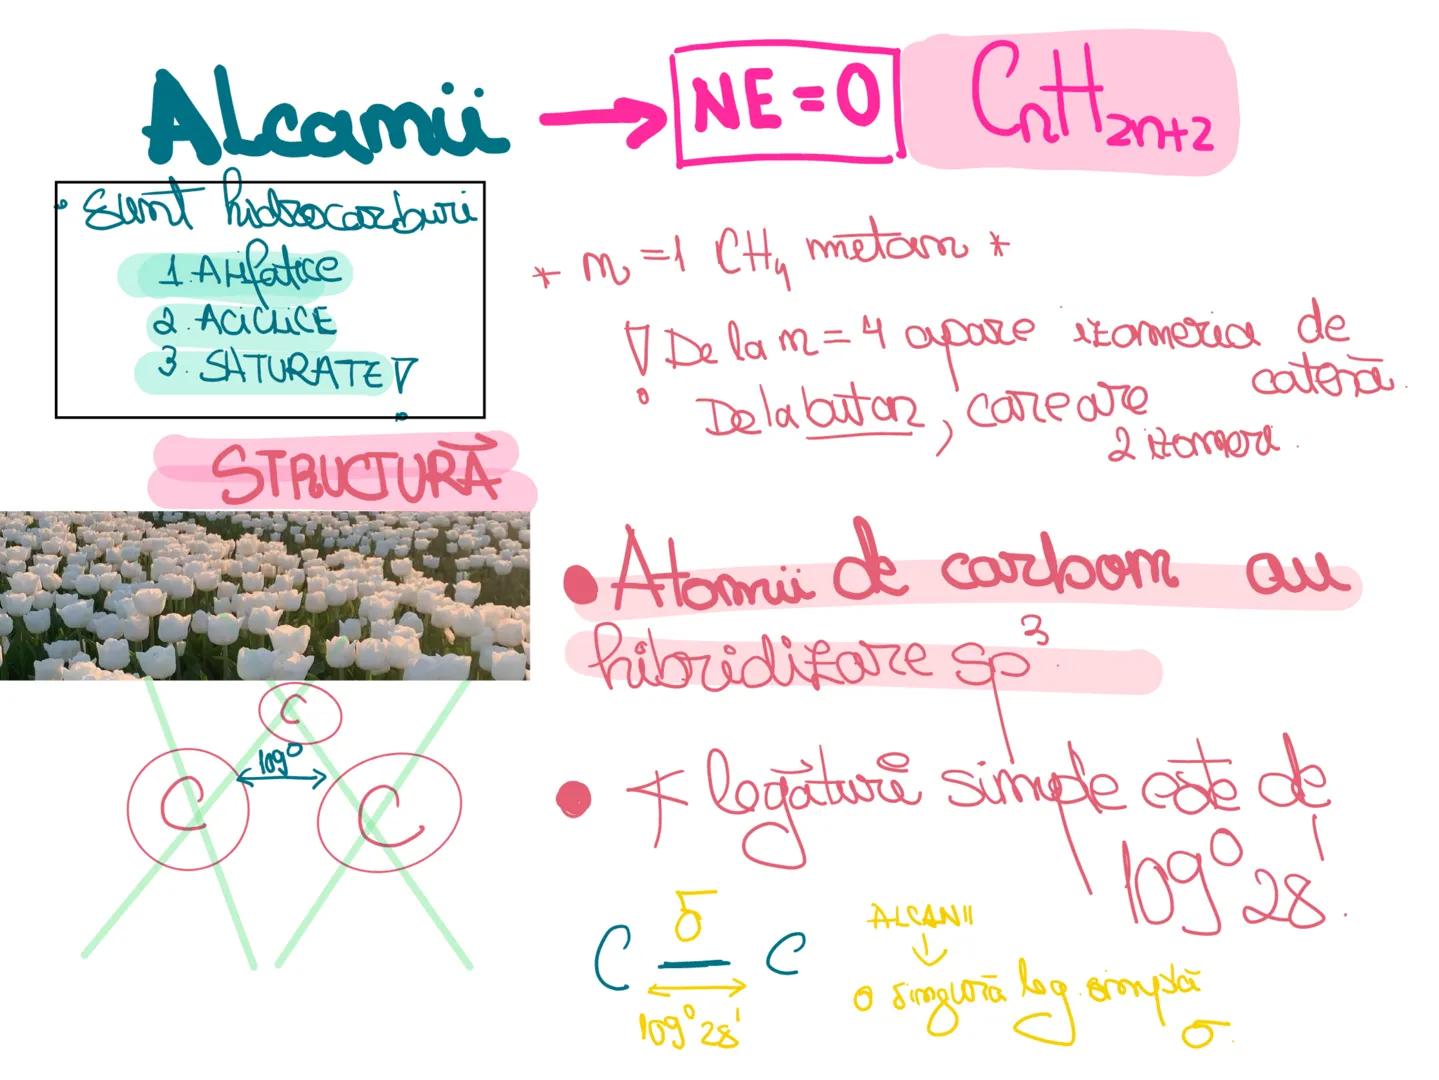 Alcanii → NE = 0 CnH2n+2
• Sunt hidrocarburi
1. Alifatice
2. ACICLICE
3. SATURATE!
* n = 1 CH4 metan *
! De la n = 4 apare izomeria de
catenă.
De la butan, care are
2 izomeri.
STRUCTURĂ
• Atomii de carbon au
hibridizare sp³.
C
109°
C C
• ∢ legături simple este de
109° 28'.
σ
C — C
109° 28'
ALCANII
↓
o singură leg. simplă
σ